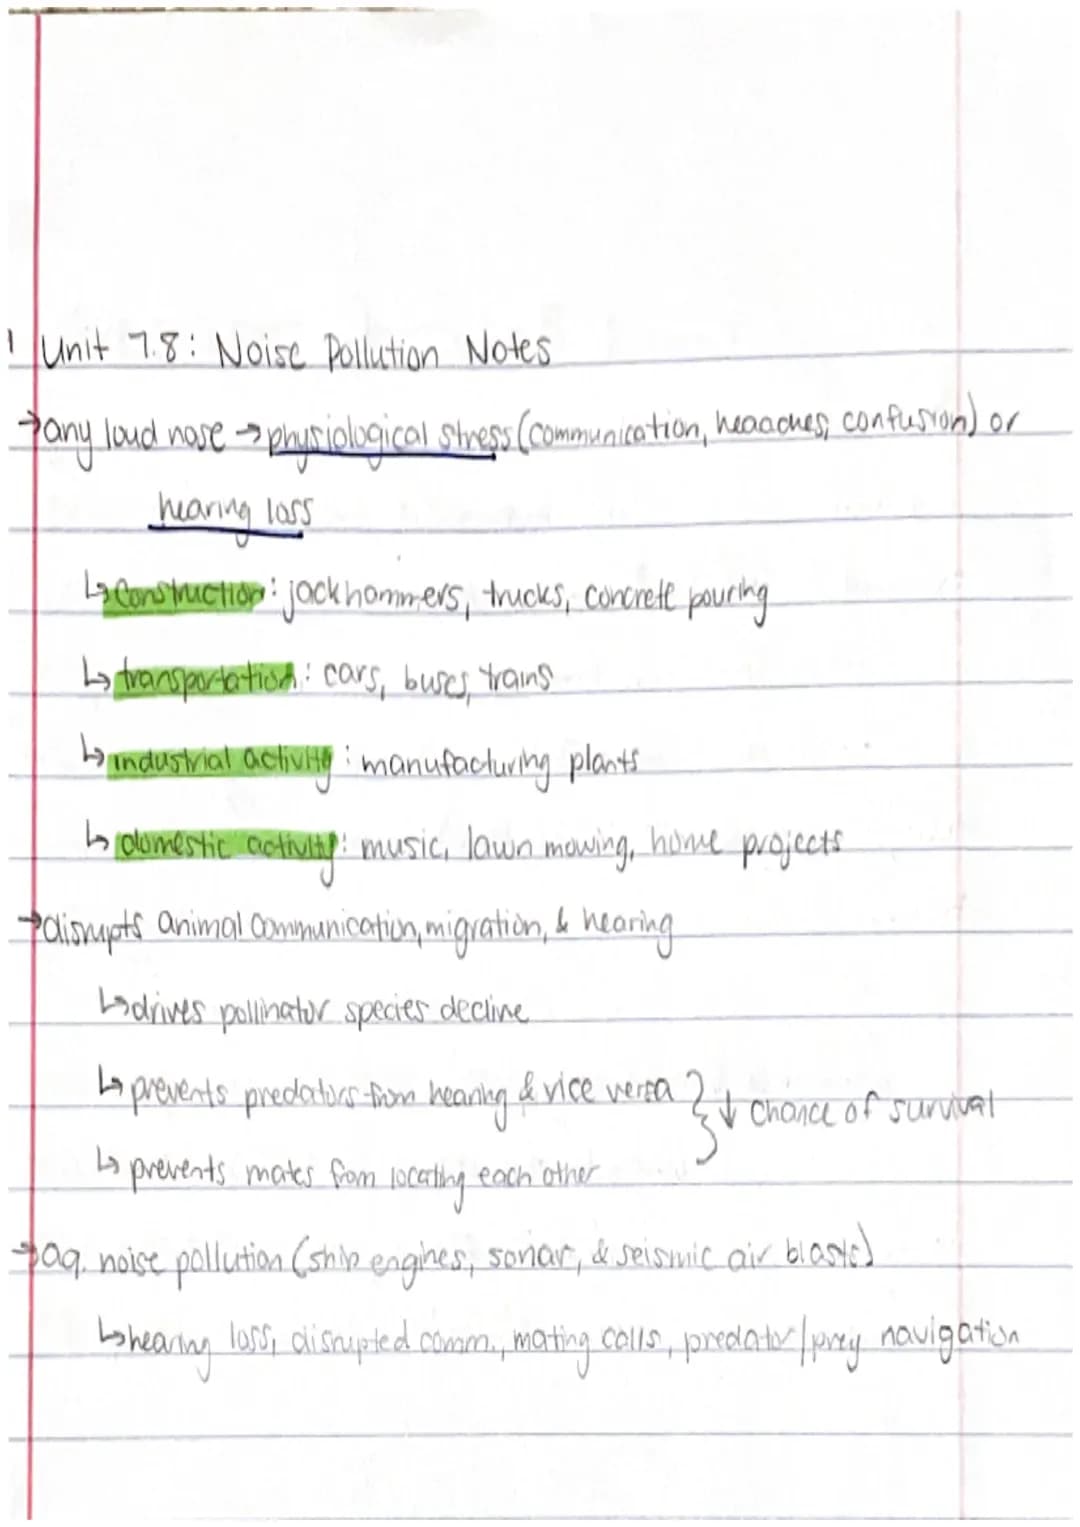 1 Unit 7.8: Noise Pollution Notes
→any loud nose → physiological stress (communication, heaaches, confusion) or
hearing loss
↳ Construction: jackhammers, trucks, concrete pouring
↳ transportation: cars, buses, trains
↳ industrial activity: manufacturing plants
↳ domestic activity: music, lawn mowing, home projects
→disrupts animal communication, migration, & hearing
↳drives pollinator species decline
↳ prevents predators from hearing & vice versa } ↓ chance of survival
↳ prevents mates from locating each other
→aq. noise pollution (ship engines, sonar, & seismic air blasts)
↳hearing loss, disrupted comm., mating calls, predator/prey navigation